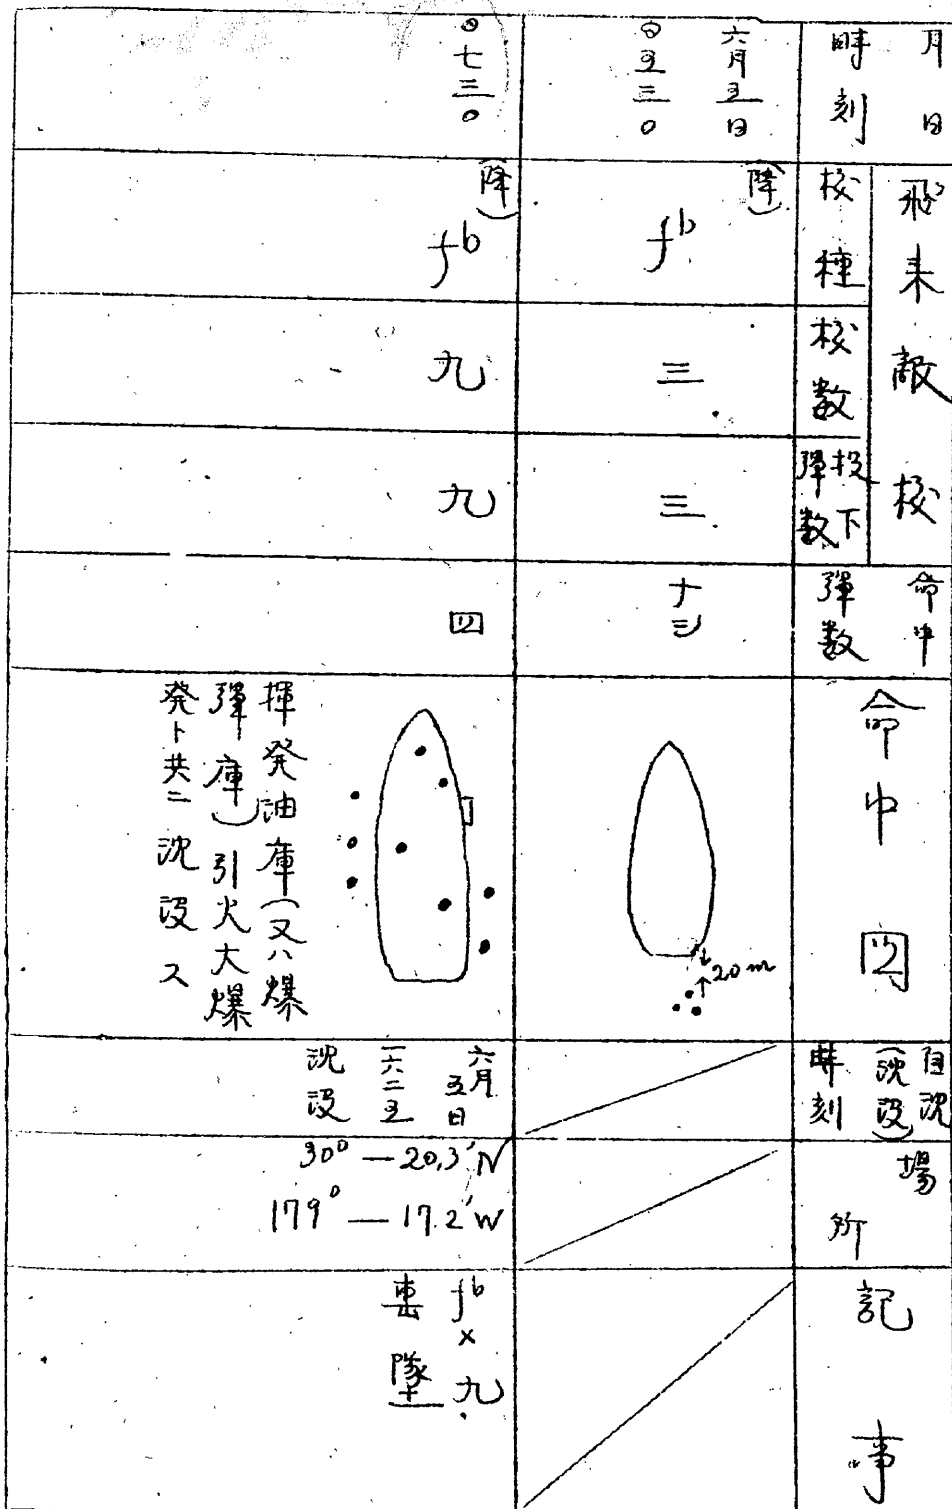 月日
時刻
飛来敵機
機種
機数
投下
弾数
命中
弾数
命中図
自沈
(沈没)
時刻
場所
記事
六月五日
〇五三〇
(降)
fb
三
三
ナシ
20m
〇七三〇
(降)
fb
九
九
四
揮発油庫(又ハ爆
弾庫)引火大爆
発ト共ニ沈没ス
六月
五日
一六二五
沈没
30°—20.3'N
179°—17.2'W
fb×九
撃墜